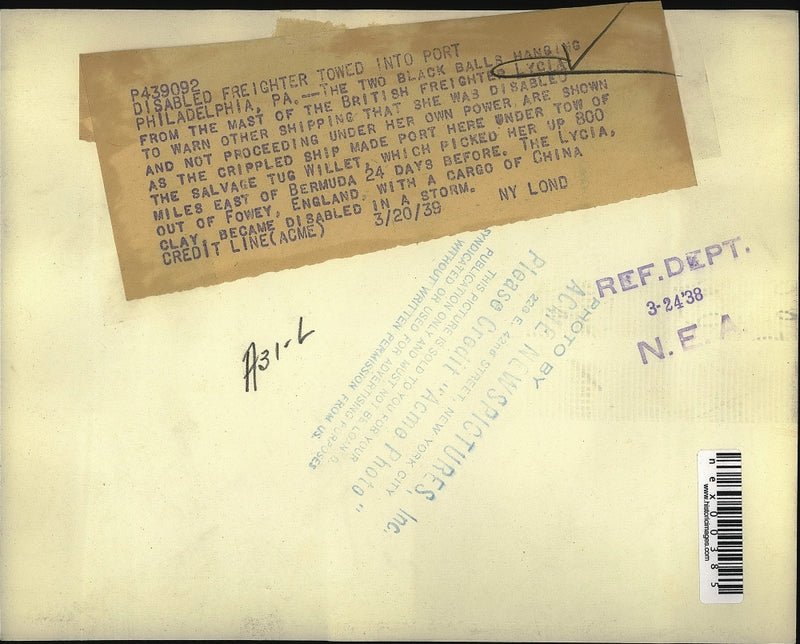 P439092
DISABLED FREIGHTER TOWED INTO PORT
PHILADELPHIA, PA.--THE TWO BLACK BALLS HANGING
FROM THE MAST OF THE BRITISH FREIGHTER LYCIA
TO WARN OTHER SHIPPING THAT SHE WAS DISABLED
AND NOT PROCEEDING UNDER HER OWN POWER, ARE SHOWN
AS THE CRIPPLED SHIP MADE PORT HERE UNDER TOW OF
THE SALVAGE TUG WILLET, WHICH PICKED HER UP 800
MILES EAST OF BERMUDA 24 DAYS BEFORE. THE LYCIA,
OUT OF FOWEY, ENGLAND, WITH A CARGO OF CHINA
CLAY, BECAME DISABLED IN A STORM. NY LOND
CREDIT LINE(ACME) 3/20/39
REF. DEPT.
3-24'38
N. E. A.
A31-L
PHOTO BY
ACME NEWSPICTURES, Inc.
220 E. 42nd STREET, NEW YORK CITY
Please Credit "Acme Photo"
THIS PICTURE IS SOLD TO YOU FOR YOUR
PUBLICATION ONLY AND MUST NOT BE LOANED,
SYNDICATED OR USED FOR ADVERTISING PURPOSES
WITHOUT WRITTEN PERMISSION FROM US.
nex00385
www.historicimages.com